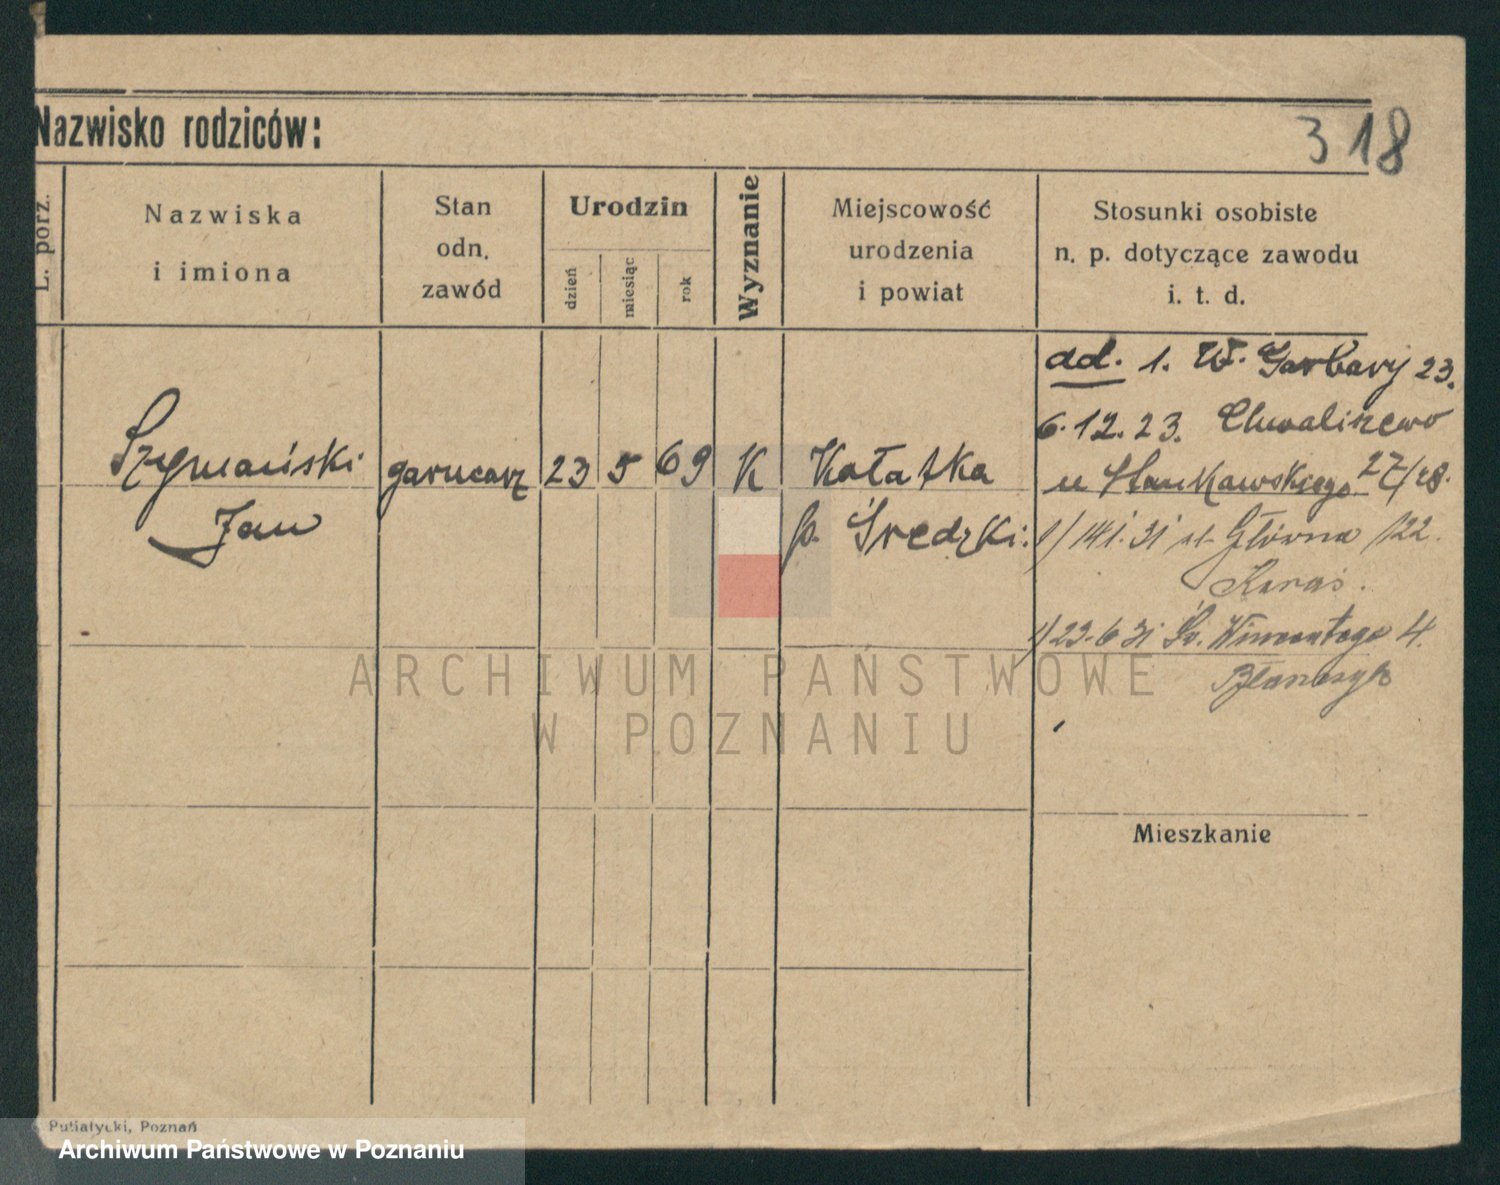 Nazwisko rodziców:
318
L. porz.
Nazwiska
i imiona
Stan
odn.
zawód
Urodzin
dzień
miesiąc
rok
Wyznanie
Miejscowość
urodzenia
i powiat
Stosunki osobiste
n. p. dotyczące zawodu
i. t. d.
Szymański
Jan
garncarz
23
5
69
K
Kołatka
p. Średzki.
ad. 1. W. Garbary 23.
6.12.23. Chwaliszewo
u Stankowskiego 27/28.
1/14 1. 31 ul. Główna 122.
Karaś.
1/23.6 31 Św. Wincentego 4.
Mieszkanie
ARCHIWUM PAŃSTWOWE
W POZNANIU
Putiatycki, Poznań
Archiwum Państwowe w Poznaniu